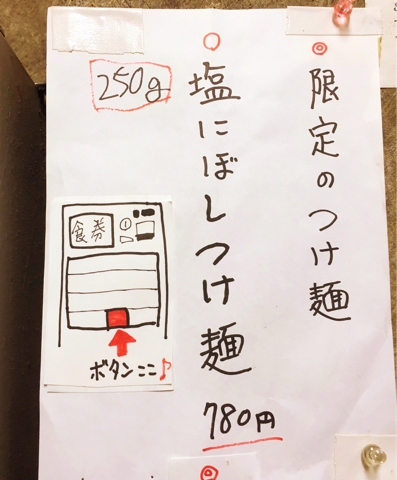 限定のつけ麺
塩にぼしつけ麺
780円
250g
食券
ボタンココ